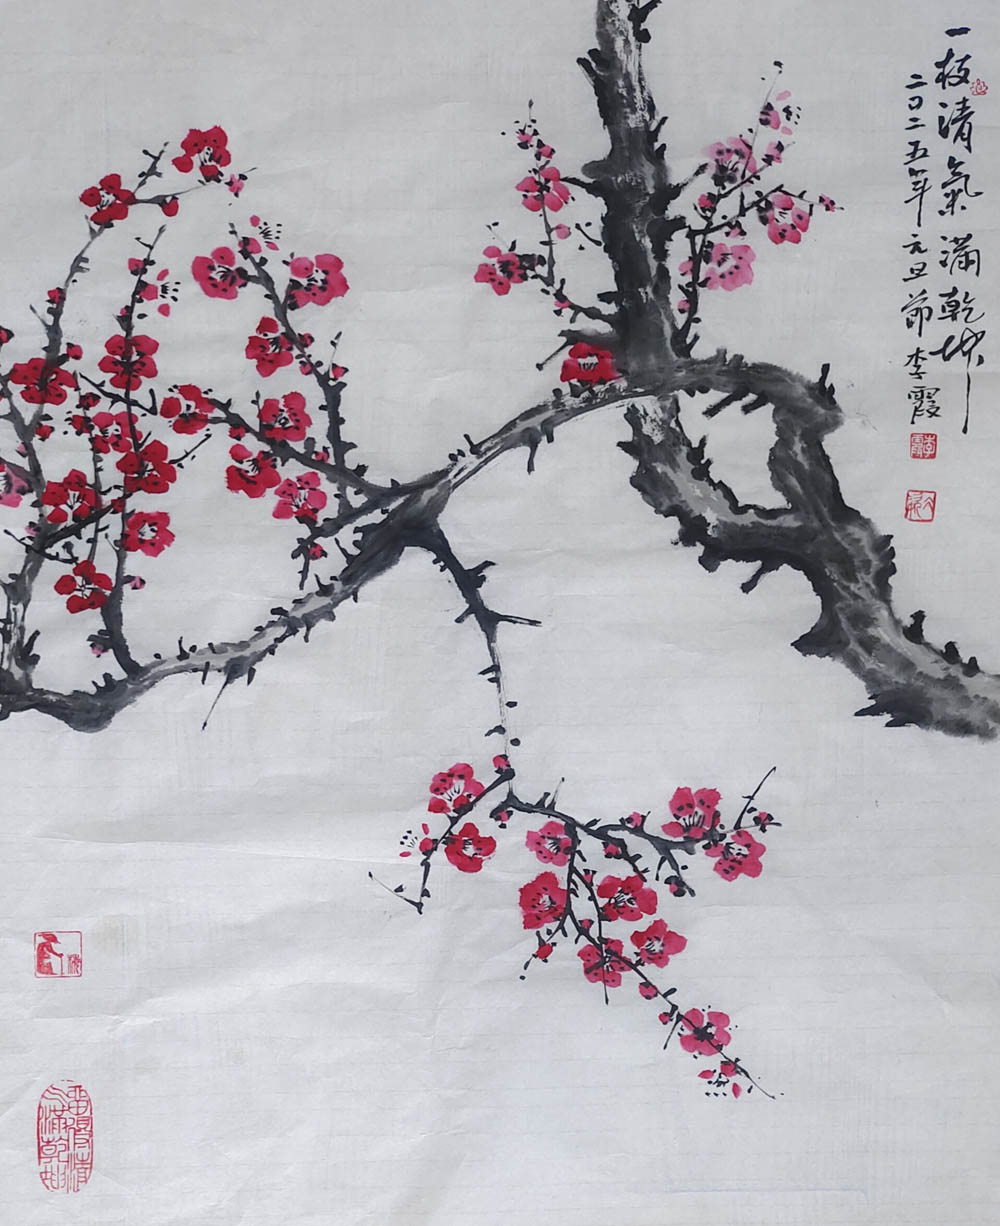 一枝清氣滿乾坤
二〇二五年元旦節李霞
李霞